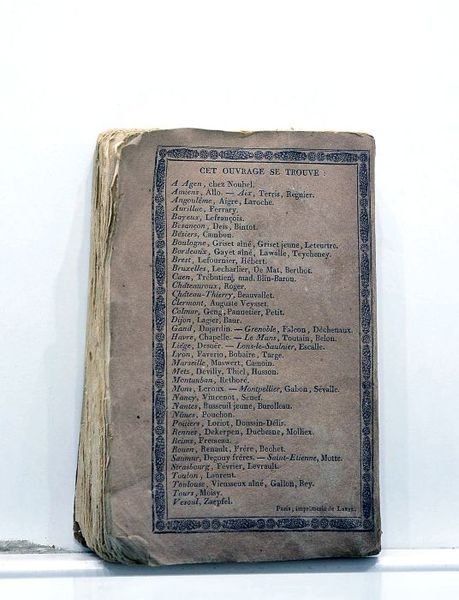 CET OUVRAGE SE TROUVE :
A Agen, chez Noubel.
Amiens, Allo. — Aix, Terris, Regnier.
Angoulême, Aigre, Laroche.
Aurillac, Ferrary.
Bayeux, Lefrançois.
Besançon, Deis, Bintot.
Béziers, Cambon.
Boulogne, Griset aîné, Griset jeune, Leteurtre.
Bordeaux, Gayet aîné, Lawalle, Teycheney.
Brest, Lefournier, Hébert.
Bruxelles, Lecharlier, De Mat, Berthot.
Caen, Trébutien, mad. Blin-Baron.
Châteauroux, Roger.
Château-Thierry, Beauvallet.
Clermont, Auguste Veysset.
Colmar, Geng, Pannetier, Petit.
Dijon, Lagier, Baur.
Gand, Dujardin. — Grenoble, Falcon, Déchenaux.
Havre, Chapelle. — Le Mans, Toutain, Belon.
Liége, Desoër. — Lons-le-Saulnier, Escalle.
Lyon, Faverio, Bohaire, Targe.
Marseille, Maswert, Camoin.
Metz, Devilly, Thiel, Husson.
Montauban, Rethoré.
Mons, Leroux. — Montpellier, Gabon, Sévalle.
Nancy, Vincenot, Senef.
Nantes, Busseuil jeune, Burolleau.
Nîmes, Pouchon.
Poitiers, Loriot, Doussin-Delis.
Rennes, Duchesne, Molliex.
Reims,
Rouen, Renault, Frère, Bechet.
Saumur, Degouy frères. — Saint-Etienne, Motte.
Strasbourg, Février, Levrault.
Toulon, Laurent.
Toulouse, Vieusseux aîné, Gallon, Rey.
Tours, Moisy.
Vesoul, Zaepfel.
Paris, imprimerie de